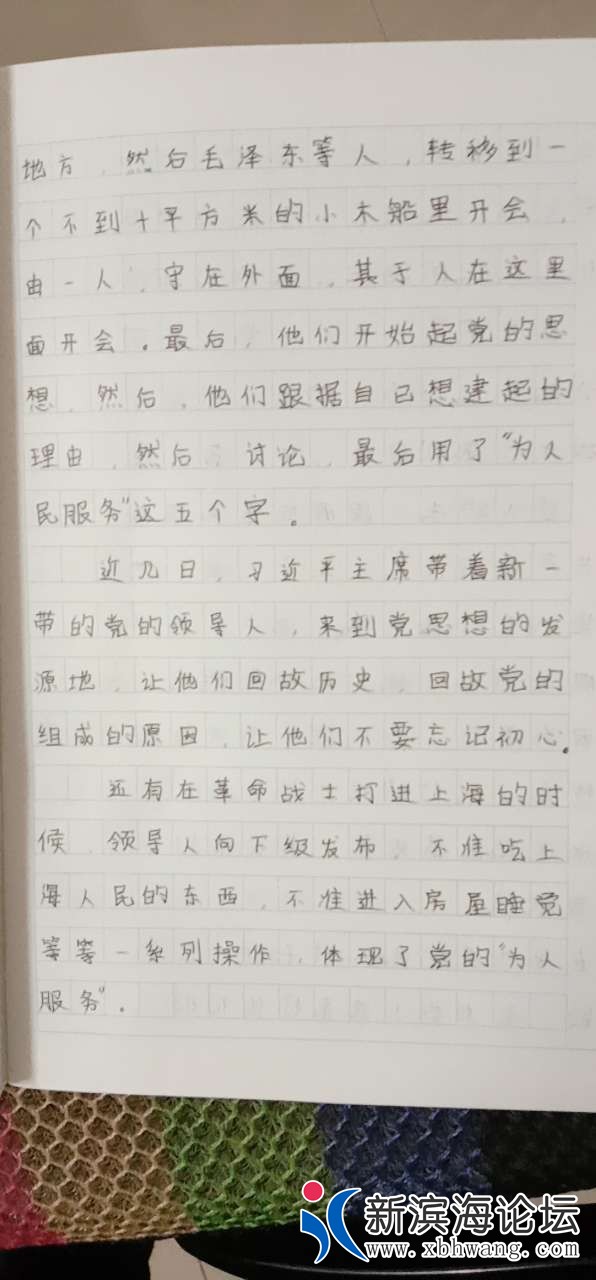 地方，然后毛泽东等人，转移到一
个不到十平方米的小木船里开会，
由一人，守在外面，其于人在这里
面开会。最后，他们开始起党的思
想，然后，他们跟据自己想建起的
理由，然后，讨论，最后用了“为人
民服务”这五个字。
近几日，习近平主席带着新一
带的党的领导人，来到党思想的发
源地，让他们回故历史，回故党的
组成的原因，让他们不要忘记初心。
还有在革命战士打进上海的时
候，领导人向下级发布，不准吃上
海人民的东西，不准进入房屋睡觉
等等一系列操作，体现了党的“为人
服务”。
新滨海论坛
www.xbhwang.com